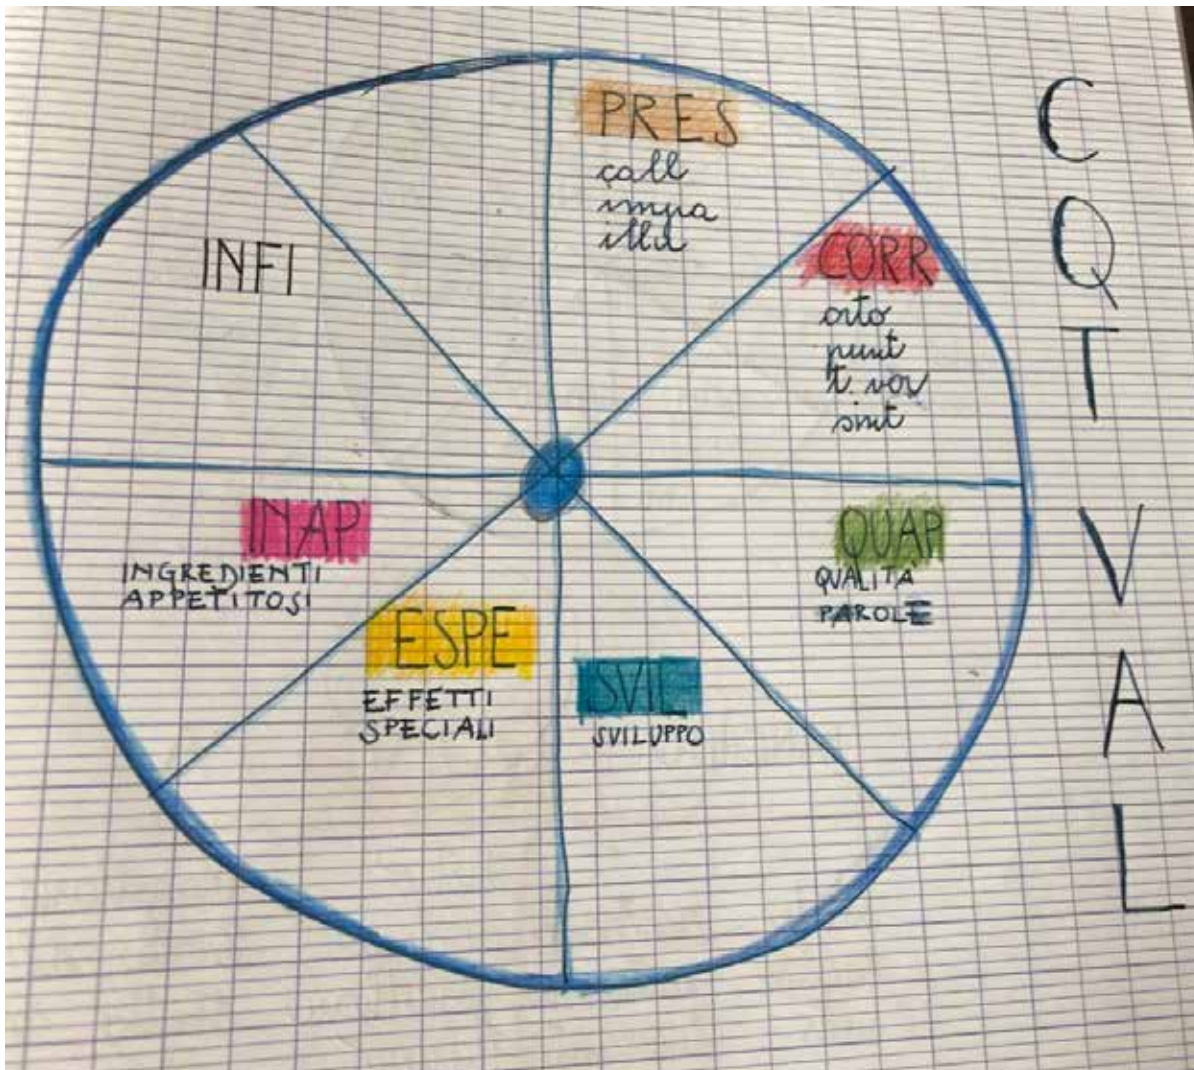 PRES
call
impa
illu
CORR
orto
punt
t. vor
sint
QUAP
QUALITÀ
PAROLE
SVIL
SVILUPPO
ESPE
EFFETTI
SPECIALI
INAP
INGREDIENTI
APPETITOSI
INFI
C
Q
T
V
A
L